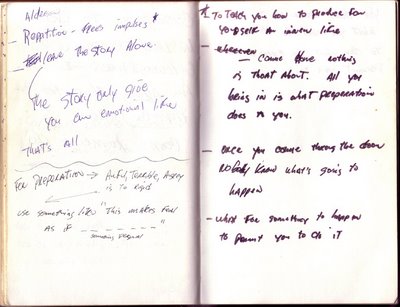 - Repetition - frees impulses *
- leave the story alone.
The story only give
you an emotional line
That's all
For Preparation → Awful, Terrible, Angry
is to rigid
use something like "This makes feel
as if _ _ _ _ _ _ _ "
something personal
* To Teach you how to produce for
yourself a inner life
- whenever
- come have nothing
is that about. All you
bring in is what preparation
does to you.
- Once you come through the door
Nobody knows what's going to
happen
- wait for something to happen
to permit you to do it